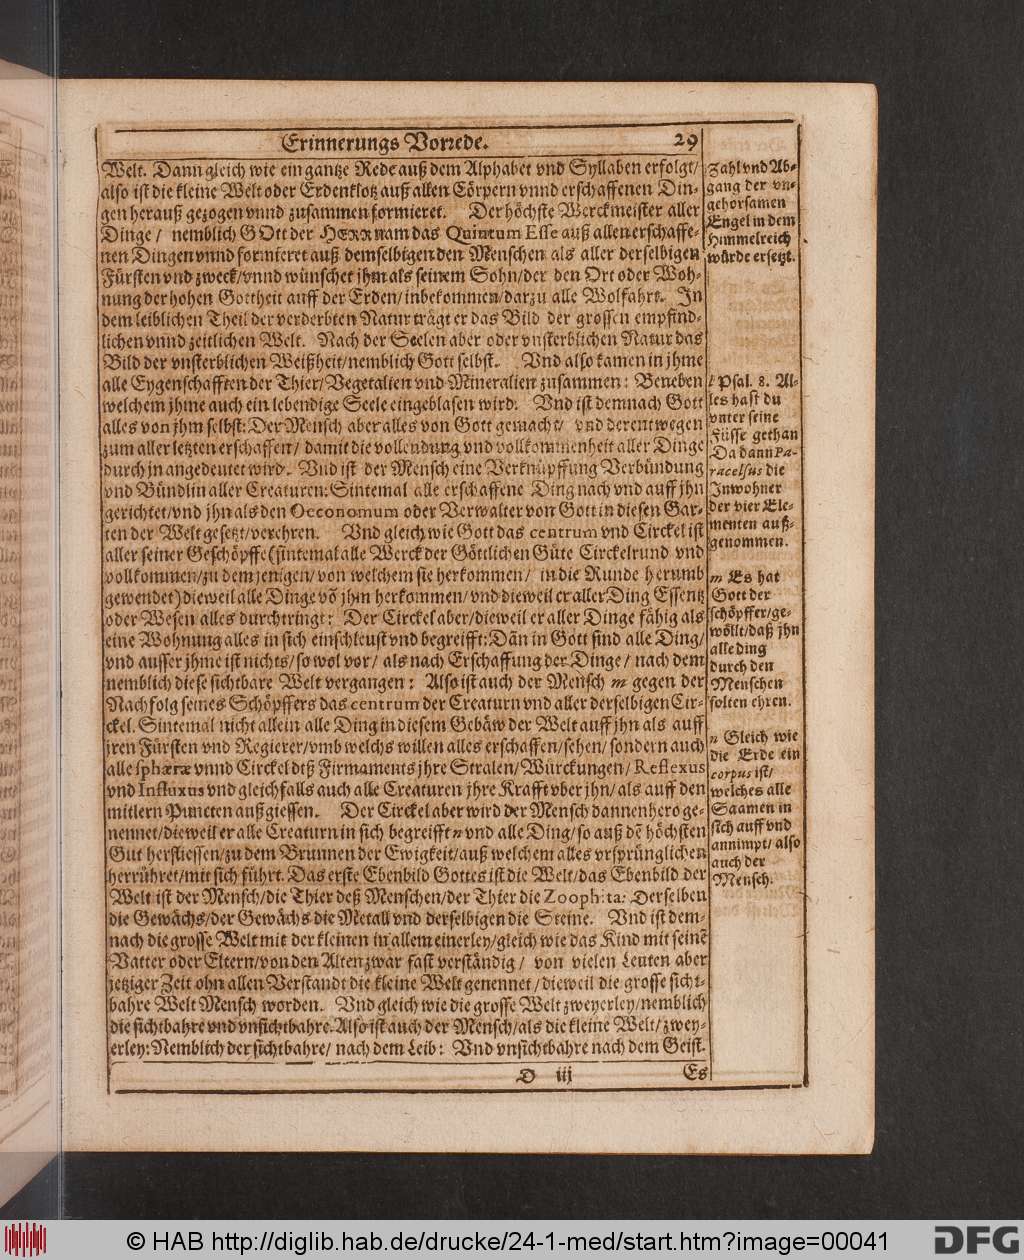 Erinnerungs Vorrede. 29
Welt. Dann gleich wie ein gantze Rede auß dem Alphabet vnd Syllaben erfolgt/
also ist die kleine Welt oder Erdenklotz auß allen Cörpern vnnd erschaffenen Din-
gen herauß gezogen vnnd zusammen formieret. Der höchste Werckmeister aller
Dinge/ nemblich GOtt der HERR nam das Quintum Esse auß allen erschaffe-
nen Dingen vnnd formieret auß demselbigen den Menschen als aller derselbigen
Fürsten vnd zweck/vnnd wünschet jhm als seinem Sohn/der den Ort oder Woh-
nung der hohen Gottheit auff der Erden/inbekommen/darzu alle Wolfahrt. In
dem leiblichen Theil der verderbten Natur trägt er das Bild der grossen empfind-
lichen vnnd zeitlichen Welt. Nach der Seelen aber oder vnsterblichen Natur das
Bild der vnsterblichen Weißheit/nemblich Gott selbst. Vnd also kamen in jhme
alle Eygenschafften der Thier/Vegetalien vnd Mineralien zusammen: Beneben
welchem jhme auch ein lebendige Seele eingeblasen wird. Vnd ist demnach Gott
alles von jhm selbst: Der Mensch aber alles von Gott gemacht/ vnd derentwegen
zum aller letzten erschaffen/ damit die vollendung vnd vollkommenheit aller Dinge
durch jn angedeutet wird. Vnd ist der Mensch eine Verknüpffung Verbündung
vnd Bündlin aller Creaturen: Sintemal alle erschaffene Ding nach vnd auff jhn
gerichtet/vnd jhn als den Oeconomum oder Verwalter von Gott in diesen Gar-
ten der Welt gesetzt/verehren. Vnd gleich wie Gott das centrum vnd Circkel ist
aller seiner Geschöpffe (sintemal alle Werck der Göttlichen Güte Circkelrund vnd
vollkommen/zu dem jenigen/von welchem sie herkommen/ in die Runde herumb
gewendet) dieweil alle Dinge võ jhm herkommen/vnd dieweil er aller Ding Essentz
oder Wesen alles durchtringt: Der Circkel aber/dieweil er aller Dinge fähig als
eine Wohnung alles in sich einschleust vnd begreifft: Dañ in Gott sind alle Ding/
vnd ausser jhme ist nichts/so wol vor/ als nach Erschaffung der Dinge/ nach dem
nemblich diese sichtbare Welt vergangen: Also ist auch der Mensch m gegen der
Nachfolg seines Schöpffers das centrum der Creaturn vnd aller derselbigen Cir-
ckel. Sintemal nicht allein alle Ding in diesem Gebäw der Welt auff jhn als auff
jren Fürsten vnd Regierer/vmb welchs willen alles erschaffen/sehen/sondern auch
alle sphæræ vnnd Circkel deß Firmaments jhre Stralen/Würckungen/Reflexus
vnd Influxus vnd gleichfalls auch alle Creaturen jhre Krafft vber jhn/als auff den
mitlern Puncten außgiessen. Der Circkel aber wird der Mensch dannenhero ge-
nennet/dieweil er alle Creaturn in sich begreifft n vnd alle Ding/so auß dẽ höchsten
Gut herfliessen/zu dem Brunnen der Ewigkeit/auß welchem alles vrsprünglichen
herrühret/mit sich führt. Das erste Ebenbild Gottes ist die Welt/das Ebenbild der
Welt ist der Mensch/die Thier deß Menschen/der Thier die Zoophita: Derselben
die Gewächs/der Gewächs die Metall vnd derselbigen die Steine. Vnd ist dem-
nach die grosse Welt mit der kleinen in allem einerley/gleich wie das Kind mit seinẽ
Vatter oder Eltern/von den Alten zwar fast verständig/ von vielen Leuten aber
jetziger Zeit ohn allen Verstandt die kleine Welt genennet/dieweil die grosse sicht-
bahre Welt Mensch worden. Vnd gleich wie die grosse Welt zweyerley/nemblich
die sichtbahre vnd vnsichtbahre. Also ist auch der Mensch/als die kleine Welt/zwey-
erley: Nemblich der sichtbahre/ nach dem Leib: Vnd vnsichtbahre nach dem Geist.
D iij Es
Zahl vnd Ab-
gang der vn-
gehorsamen
Engel in dem
Himmelreich
würde ersetzt.
l Psal. 8. Al-
les hast du
vnter seine
Füsse gethan
Da dann Pa-
racelsus die
Inwohner
der vier Ele-
menten auß-
genommen.
m Es hat
Gott der
schöpffer/ge-
wöllt/daß jhn
alle ding
durch den
Menschen
solten ehren.
n Gleich wie
die Erde ein
corpus ist/
welches alle
Saamen in
sich auff vnd
annimpt/also
auch der
Mensch.
© HAB http://diglib.hab.de/drucke/24-1-med/start.htm?image=00041
DFG